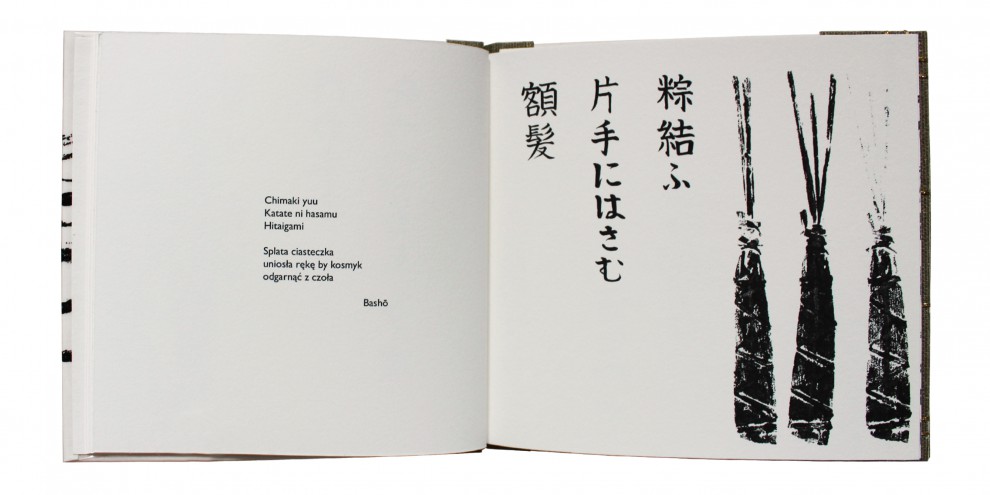 Chimaki yuu
Katate ni hasamu
Hitaigami
Splata ciasteczka
uniosła rękę by kosmyk
odgarnąć z czoła
Bashō
粽結ふ
片手にはさむ
額髪